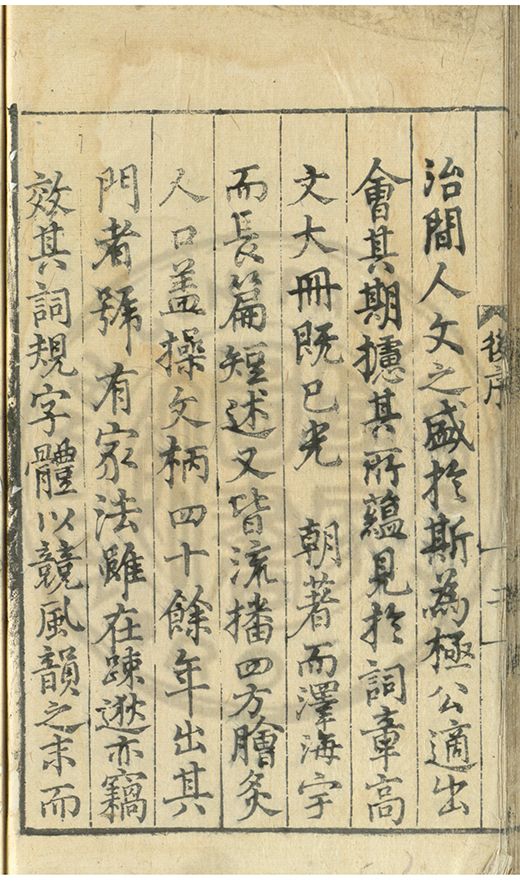 後序
二
治間人文之盛於斯為極公適出
會其期攄其所蘊見於詞章高
文大冊既已光　朝著而澤海宇
而長篇短述又皆流播四方膾炙
人口盖操文柄四十餘年出其
門者號有家法雖在踈逖亦竊
效其詞規字體以競風韻之末而